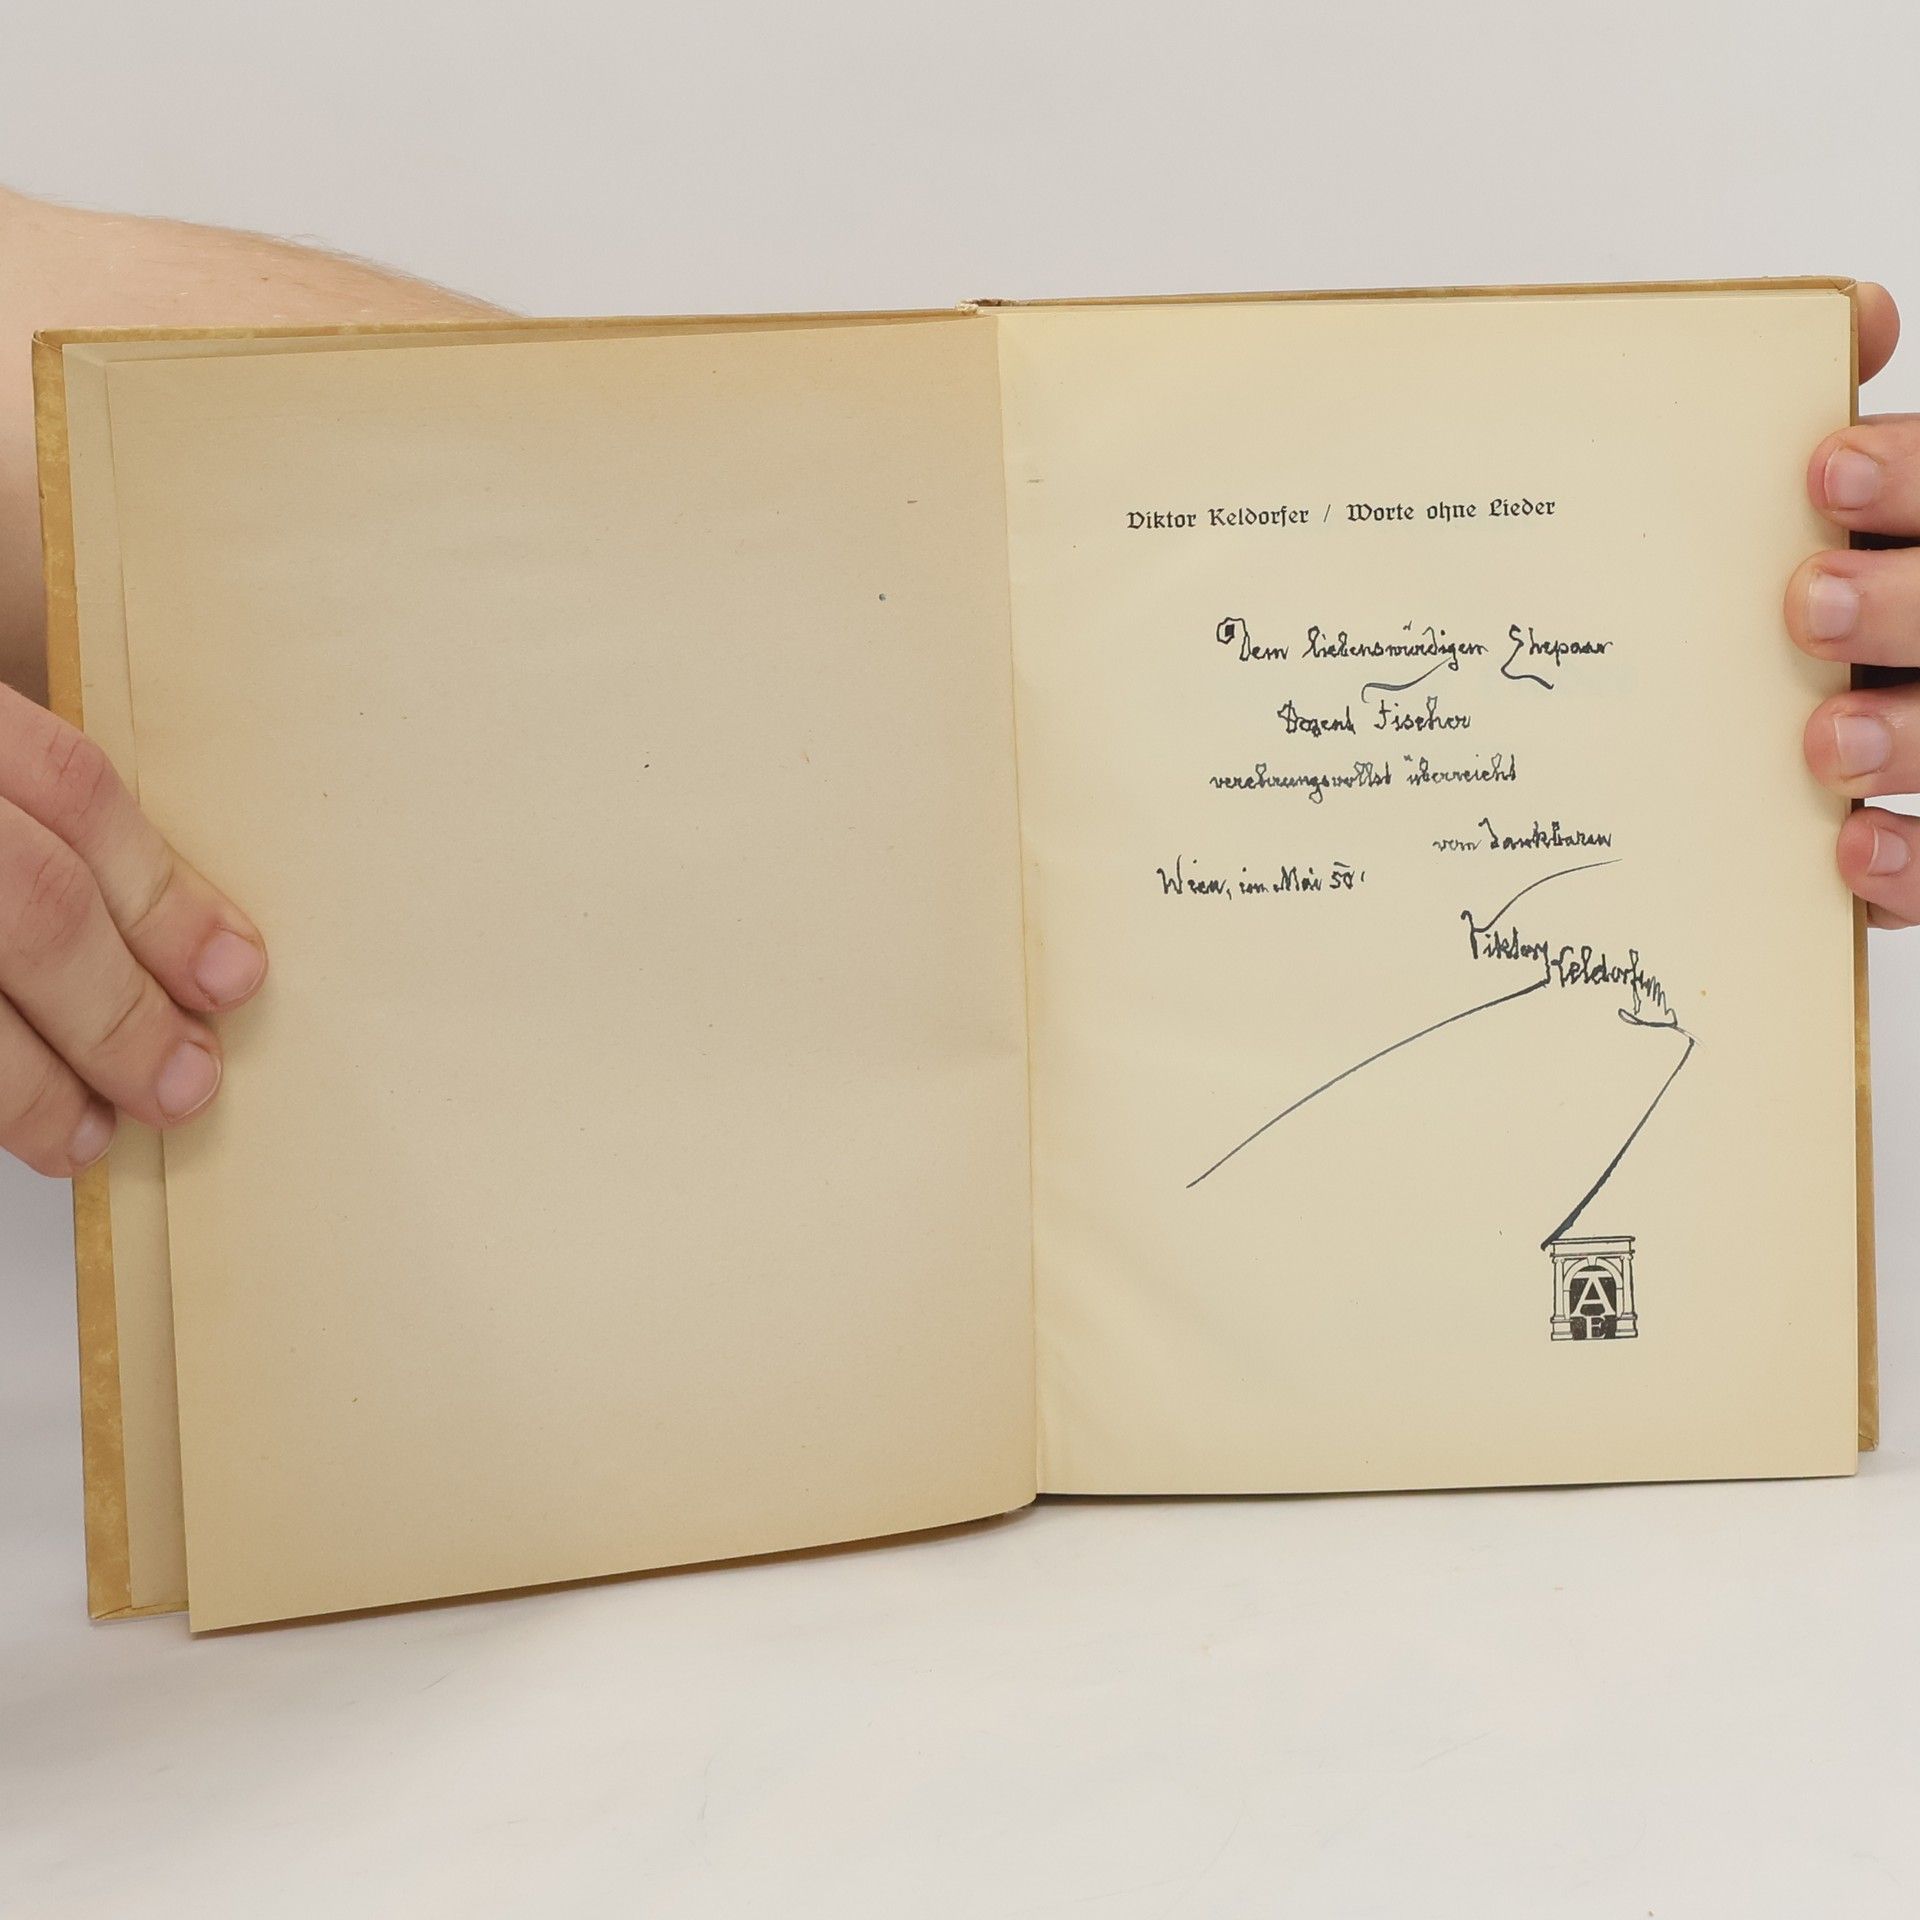 Viktor Keldorfer / Worte ohne Lieder
Dem liebenswürdigen Ehepaar
Dozent Fischer
verehrungsvollst überreicht
vom dankbaren
Wien, im Mai 50'
Viktor Keldorfer
A
E